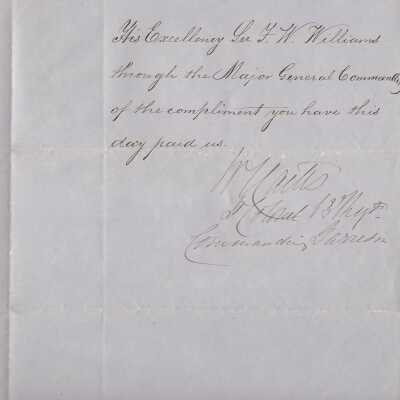 His Excellency Sir F. W. Williams
through the Major General Commanding
of the compliment you have this
day paid us.
Lt Colonel 13 Regt.
Commanding Garrison